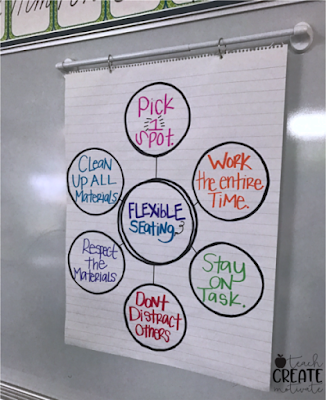 Pick
1
spot.
Clean
up ALL
Materials
Work
the entire
Time.
FLEXIBLE
SEATING
Respect
the
Materials
Stay
ON
Task.
Don't
Distract
Others
teach
CREATE
motivate